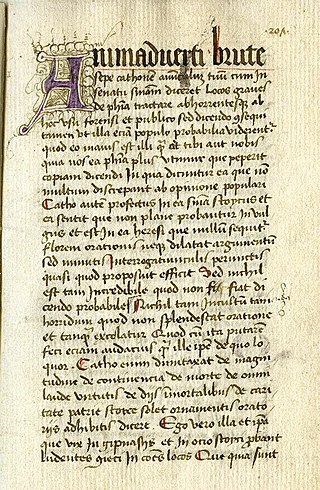 201.
Animaduerti brute
sepe cathonē auūculū tuū cum in
senatu sniam diceret Locos graues
de phīa tractare abhorrentesqȝ ab
hoc usu forensi et publico sed dicendo ꝯsequi
tamen ut illa eciam populo probabilia viderent᷑
quod eo maius est illi qͫ aut tibi aut nobis
quia nos ea phīa plus vtimur que peperit
copiam dicendi In qua dicuntur ea que nō
multum discrepant ab opinione populari
Catho autem perfectus in ea snīa stoycus et
ea sentit que non plane probantur in vul
gus et est in ea heresi que nullum sequit᷑
florem orationis neqȝ dilatat argumentū
sed minutis Interrogatiunculis perunctis
quasi quod proposuit efficit Sed nichil
est tam incredibile quod non fiat di
cendo probabile Nichil tam Incultum tam
horridum quod non splendescat oratione
et tanqͣ excolatur Quod cū ita putarem
feci eciam audacius qͣ ille ipse de quo lo
quor. Catho enim dumtaxat de magni
tudine de continencia de morte de omni
laude virtutis de dijs īmortalibus de cari
tate patrie stoyce solet ornamentis orato
rijs adhibitis dicere. Ego vero illa et ip̄a
que vix in gipnasijs et in ocio stoyci ꝓbant
ludentes ꝯieci in cōēs locos Que quia sunt